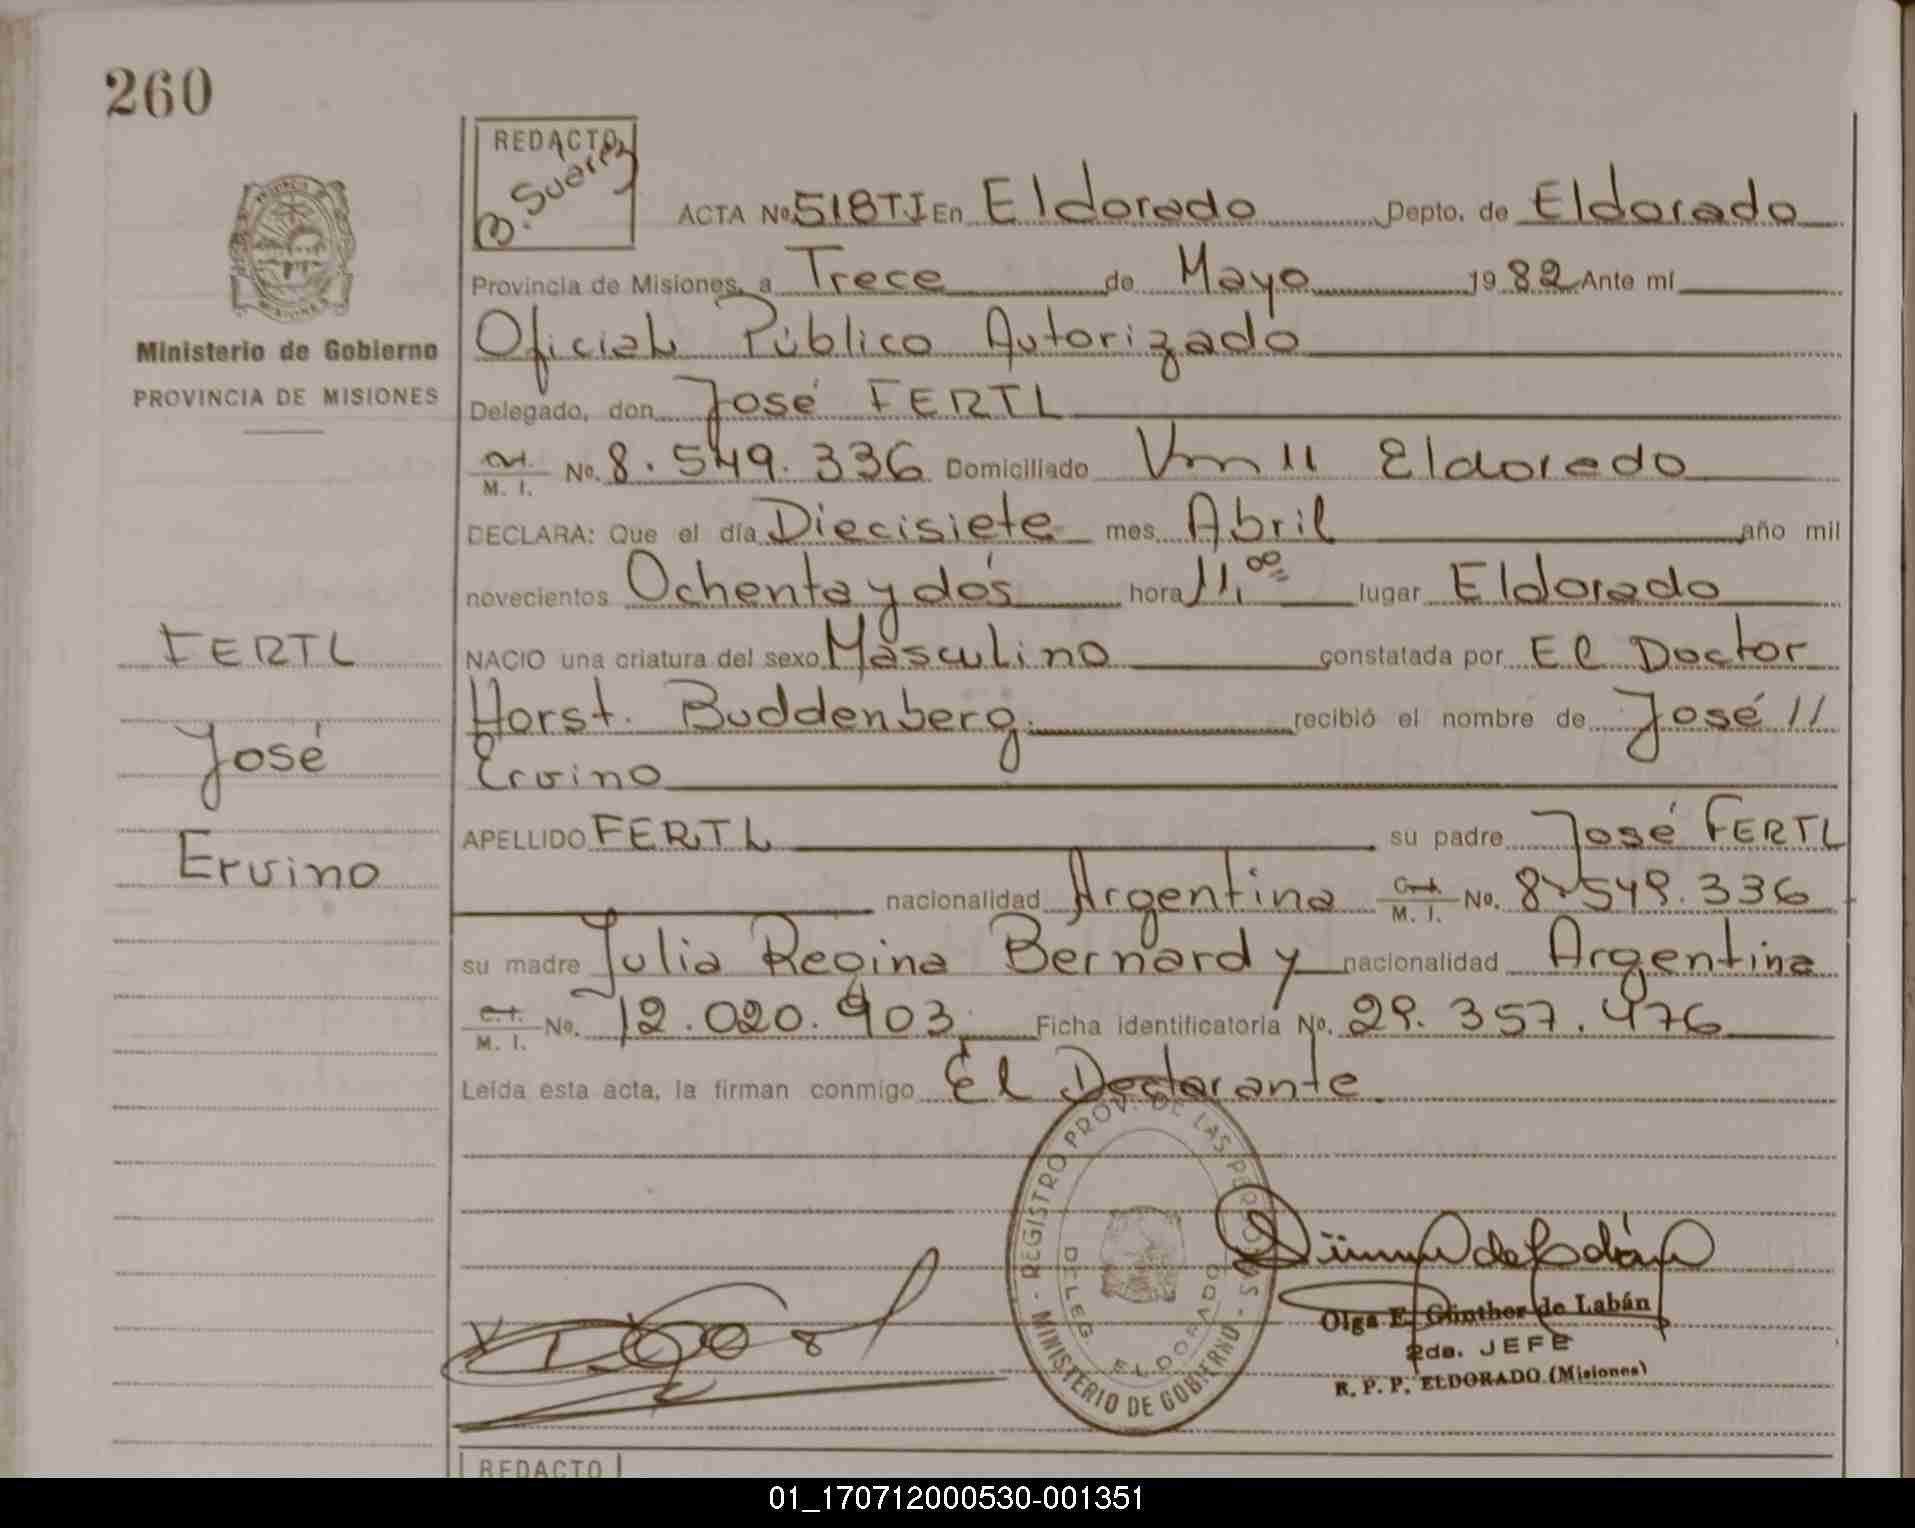 260
REDACTO
B. Suarez
ACTA No. 518TI En Eldorado Depto. de Eldorado
Provincia de Misiones, a Trece de Mayo 1982 Ante mí
Oficial Público Autorizado
Ministerio de Gobierno
PROVINCIA DE MISIONES
Delegado, don José FERTL
M. I. No. 8.549.336 Domiciliado Km 11 Eldorado
DECLARA: Que el día Diecisiete mes Abril año mil
novecientos Ochenta y dos hora 11,00 lugar Eldorado
NACIO una criatura del sexo Masculino constatada por El Doctor
Horst. Buddenberg. recibió el nombre de José //
Ervino
FERTL
José
Ervino
APELLIDO FERTL su padre José FERTL
nacionalidad Argentina M. I. No. 8.549.336
su madre Julia Regina Bernardy nacionalidad Argentina
M. I. No. 12.020.903 Ficha identificatoria No. 29.357.476
Leída esta acta, la firman conmigo El Declarante.
REGISTRO PROV. DE LAS PERSONAS - MINISTERIO DE GOBIERNO -
DELEG. ELDORADO
Olga E. Günther de Labán
2da. JEFE
R. P. P. ELDORADO (Misiones)
REDACTO
01_170712000530-001351